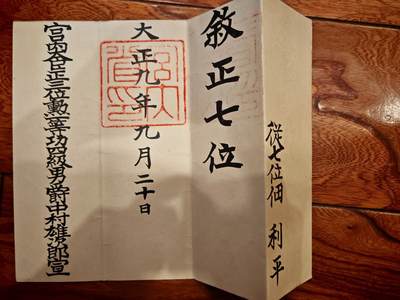 従七位佃利平
敘正七位
大正九年九月二十日
宮内大臣正三位勲一等功四級男爵中村雄次郎宣